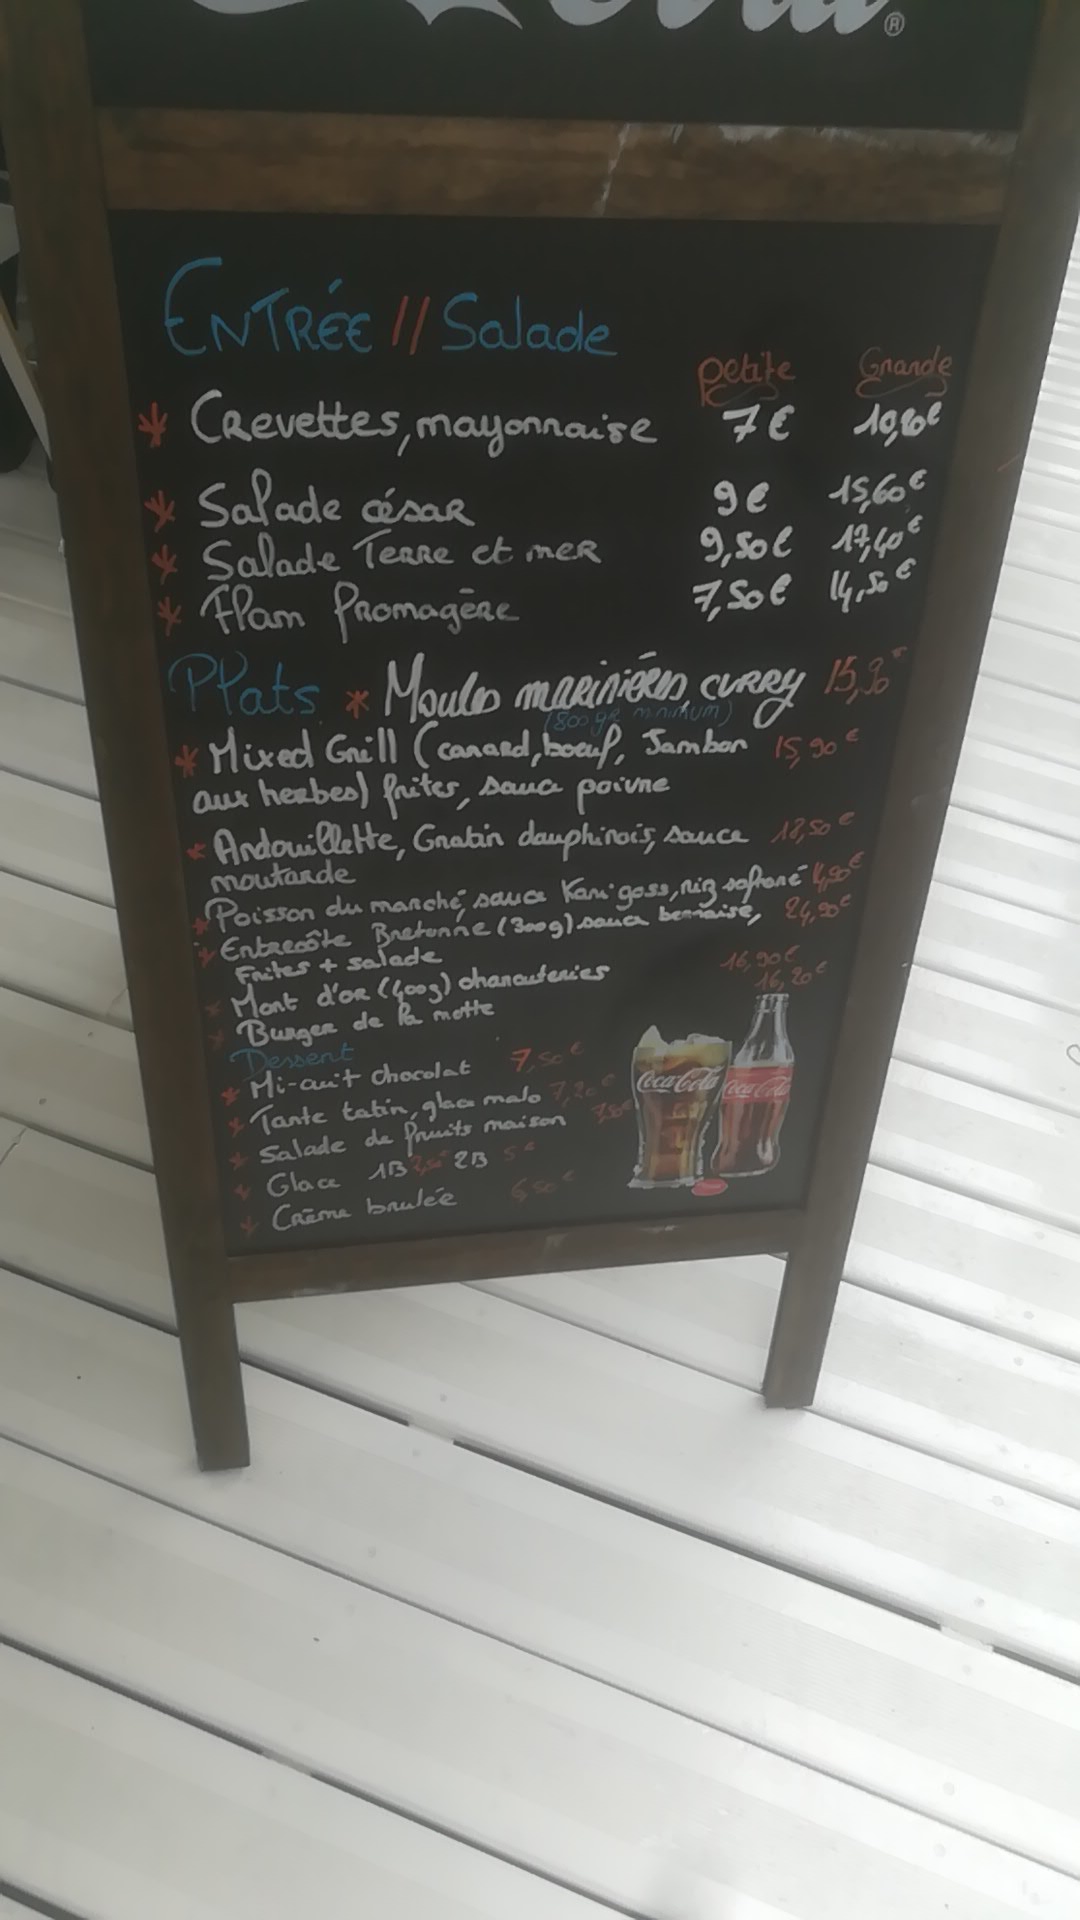 ®
ENTRÉE // Salade
petite Grande
* Crevettes, mayonnaise 7€ 10,80€
* Salade césar 9€ 15,60€
* Salade Terre et mer 9,50€ 17,40€
* Flam fromagère 7,50€ 14,50€
Plats * Moules marinières curry 15,90
(800gr minimum)
* Mixed Grill (canard, boeuf, Jambon 15,90€
aux herbes) frites, sauce poivre
* Andouillette, Gratin dauphinois, sauce 18,50€
moutarde
* Poisson du marché, sauce Kari goss, riz safrané
* Entrecôte Bretonne (300g) sauce bernaise, 24,90€
Frites + salade
16,90€
* Mont d'or (400g) charcuteries
16,20€
* Burger de la motte
Dessert
* Mi-cuit chocolat 7,50€
* Tarte tatin, glace malo 7,20€
* Salade de fruits maison
* Glace 1B 2,50€ 2B 5€
* Crème brulée 6,50€
Coca-Cola
Coca-Cola